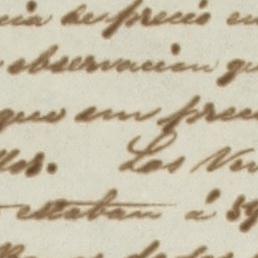 cia de precio en
observacion qu
que em prec
llos. Los Ven
estaban á 59